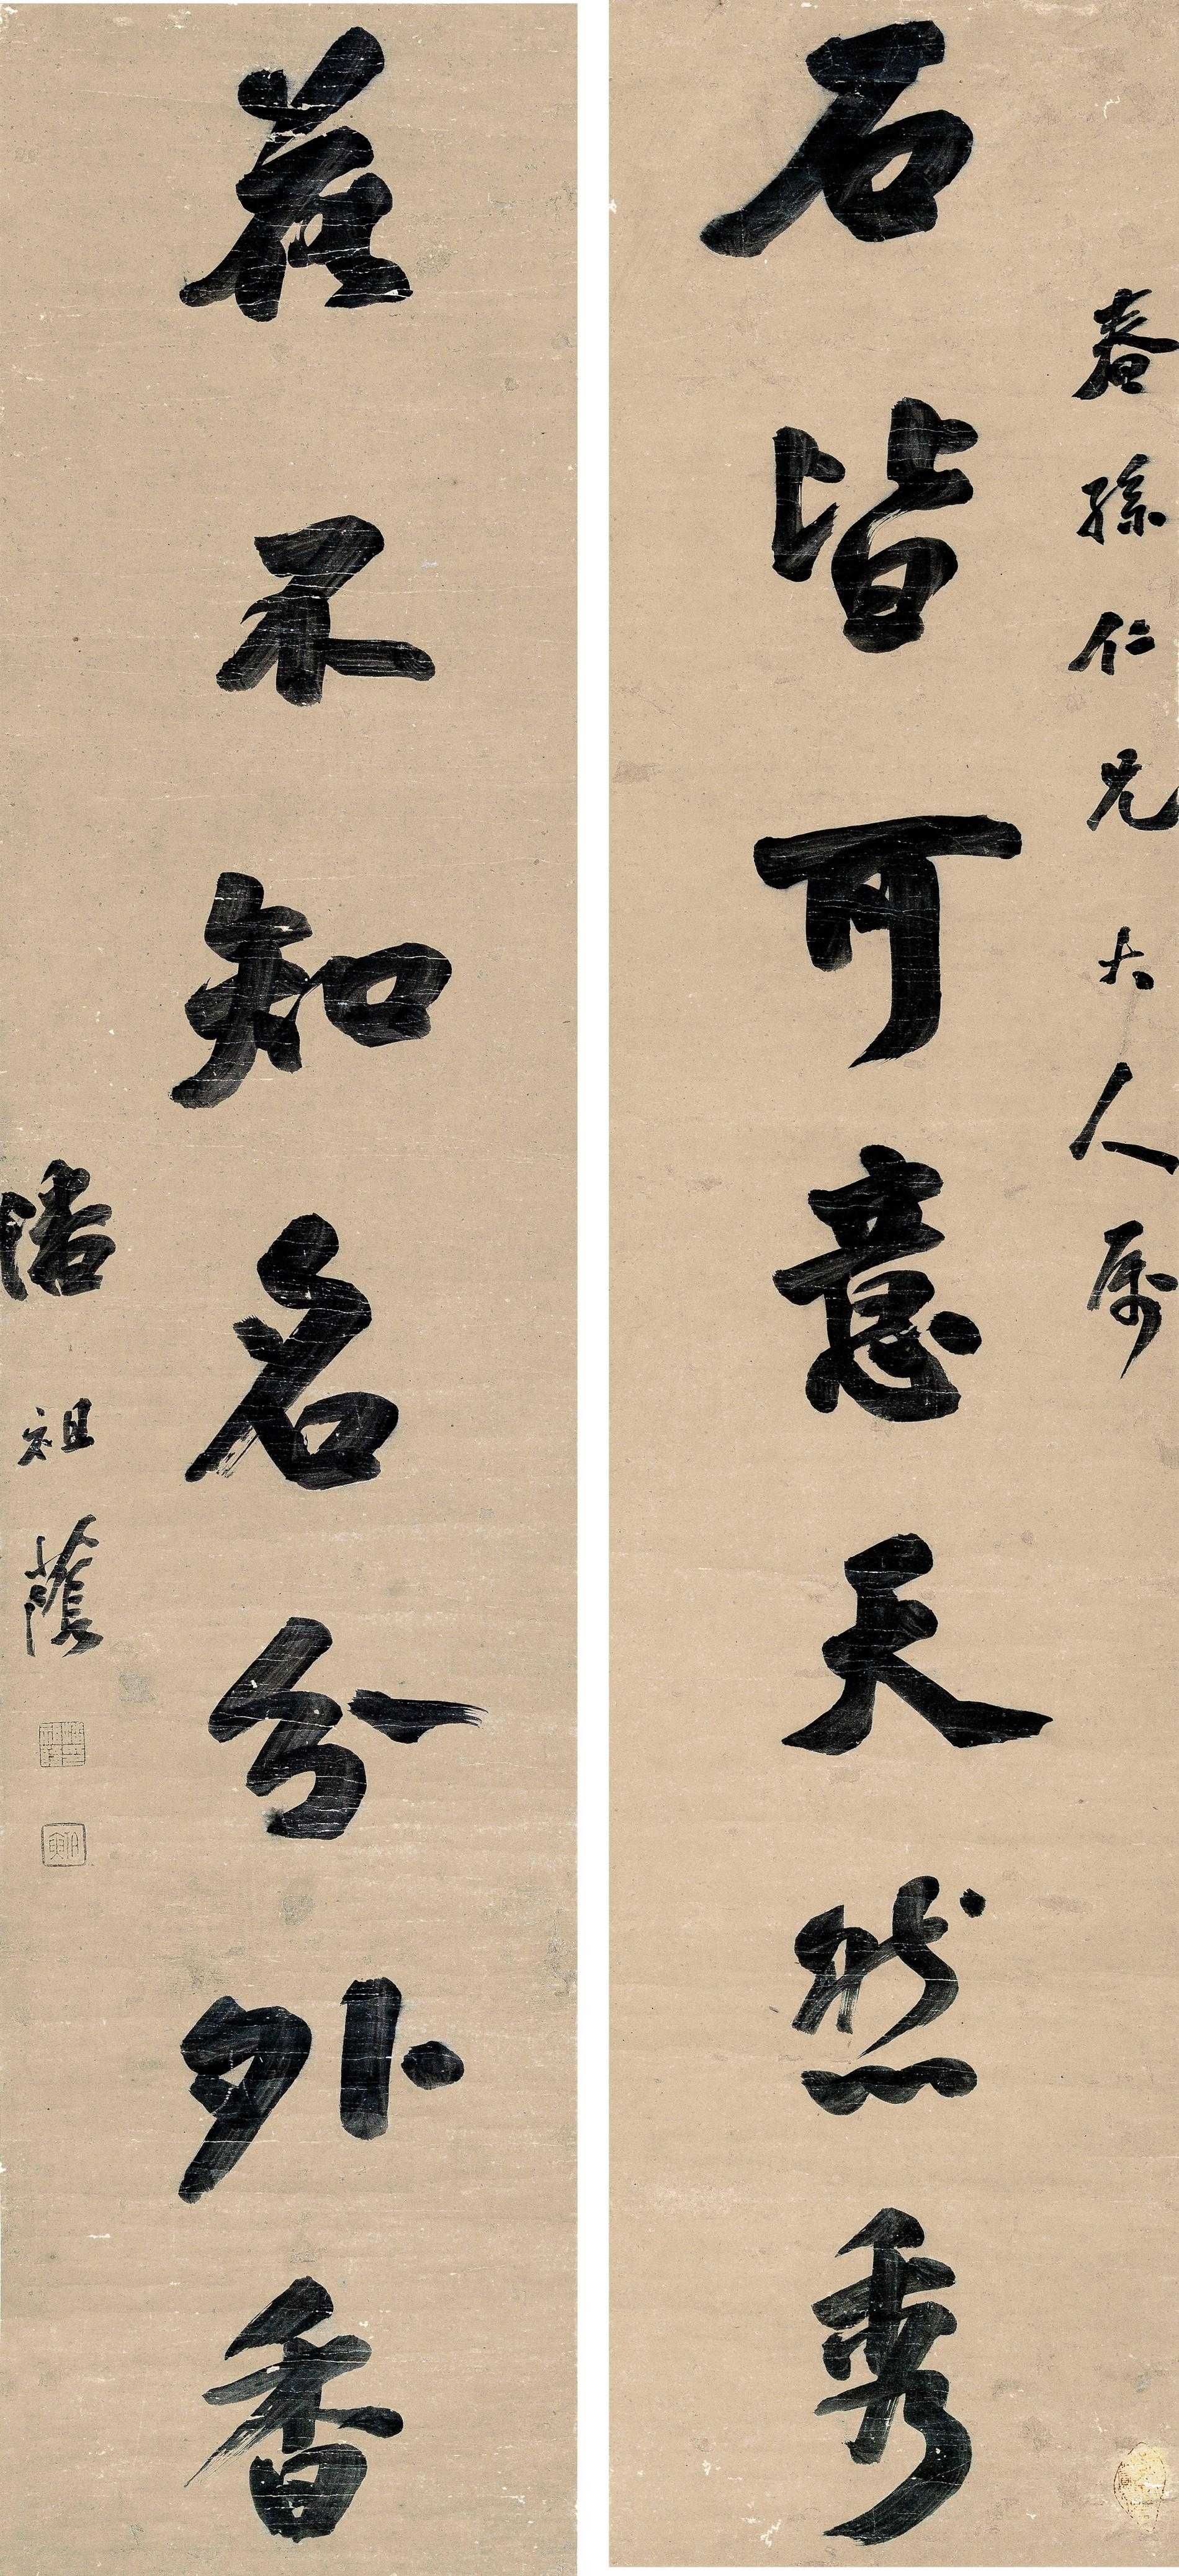 春孫仁兄大人属
石皆可意天然秀
花不知名分外香
潘祖蔭